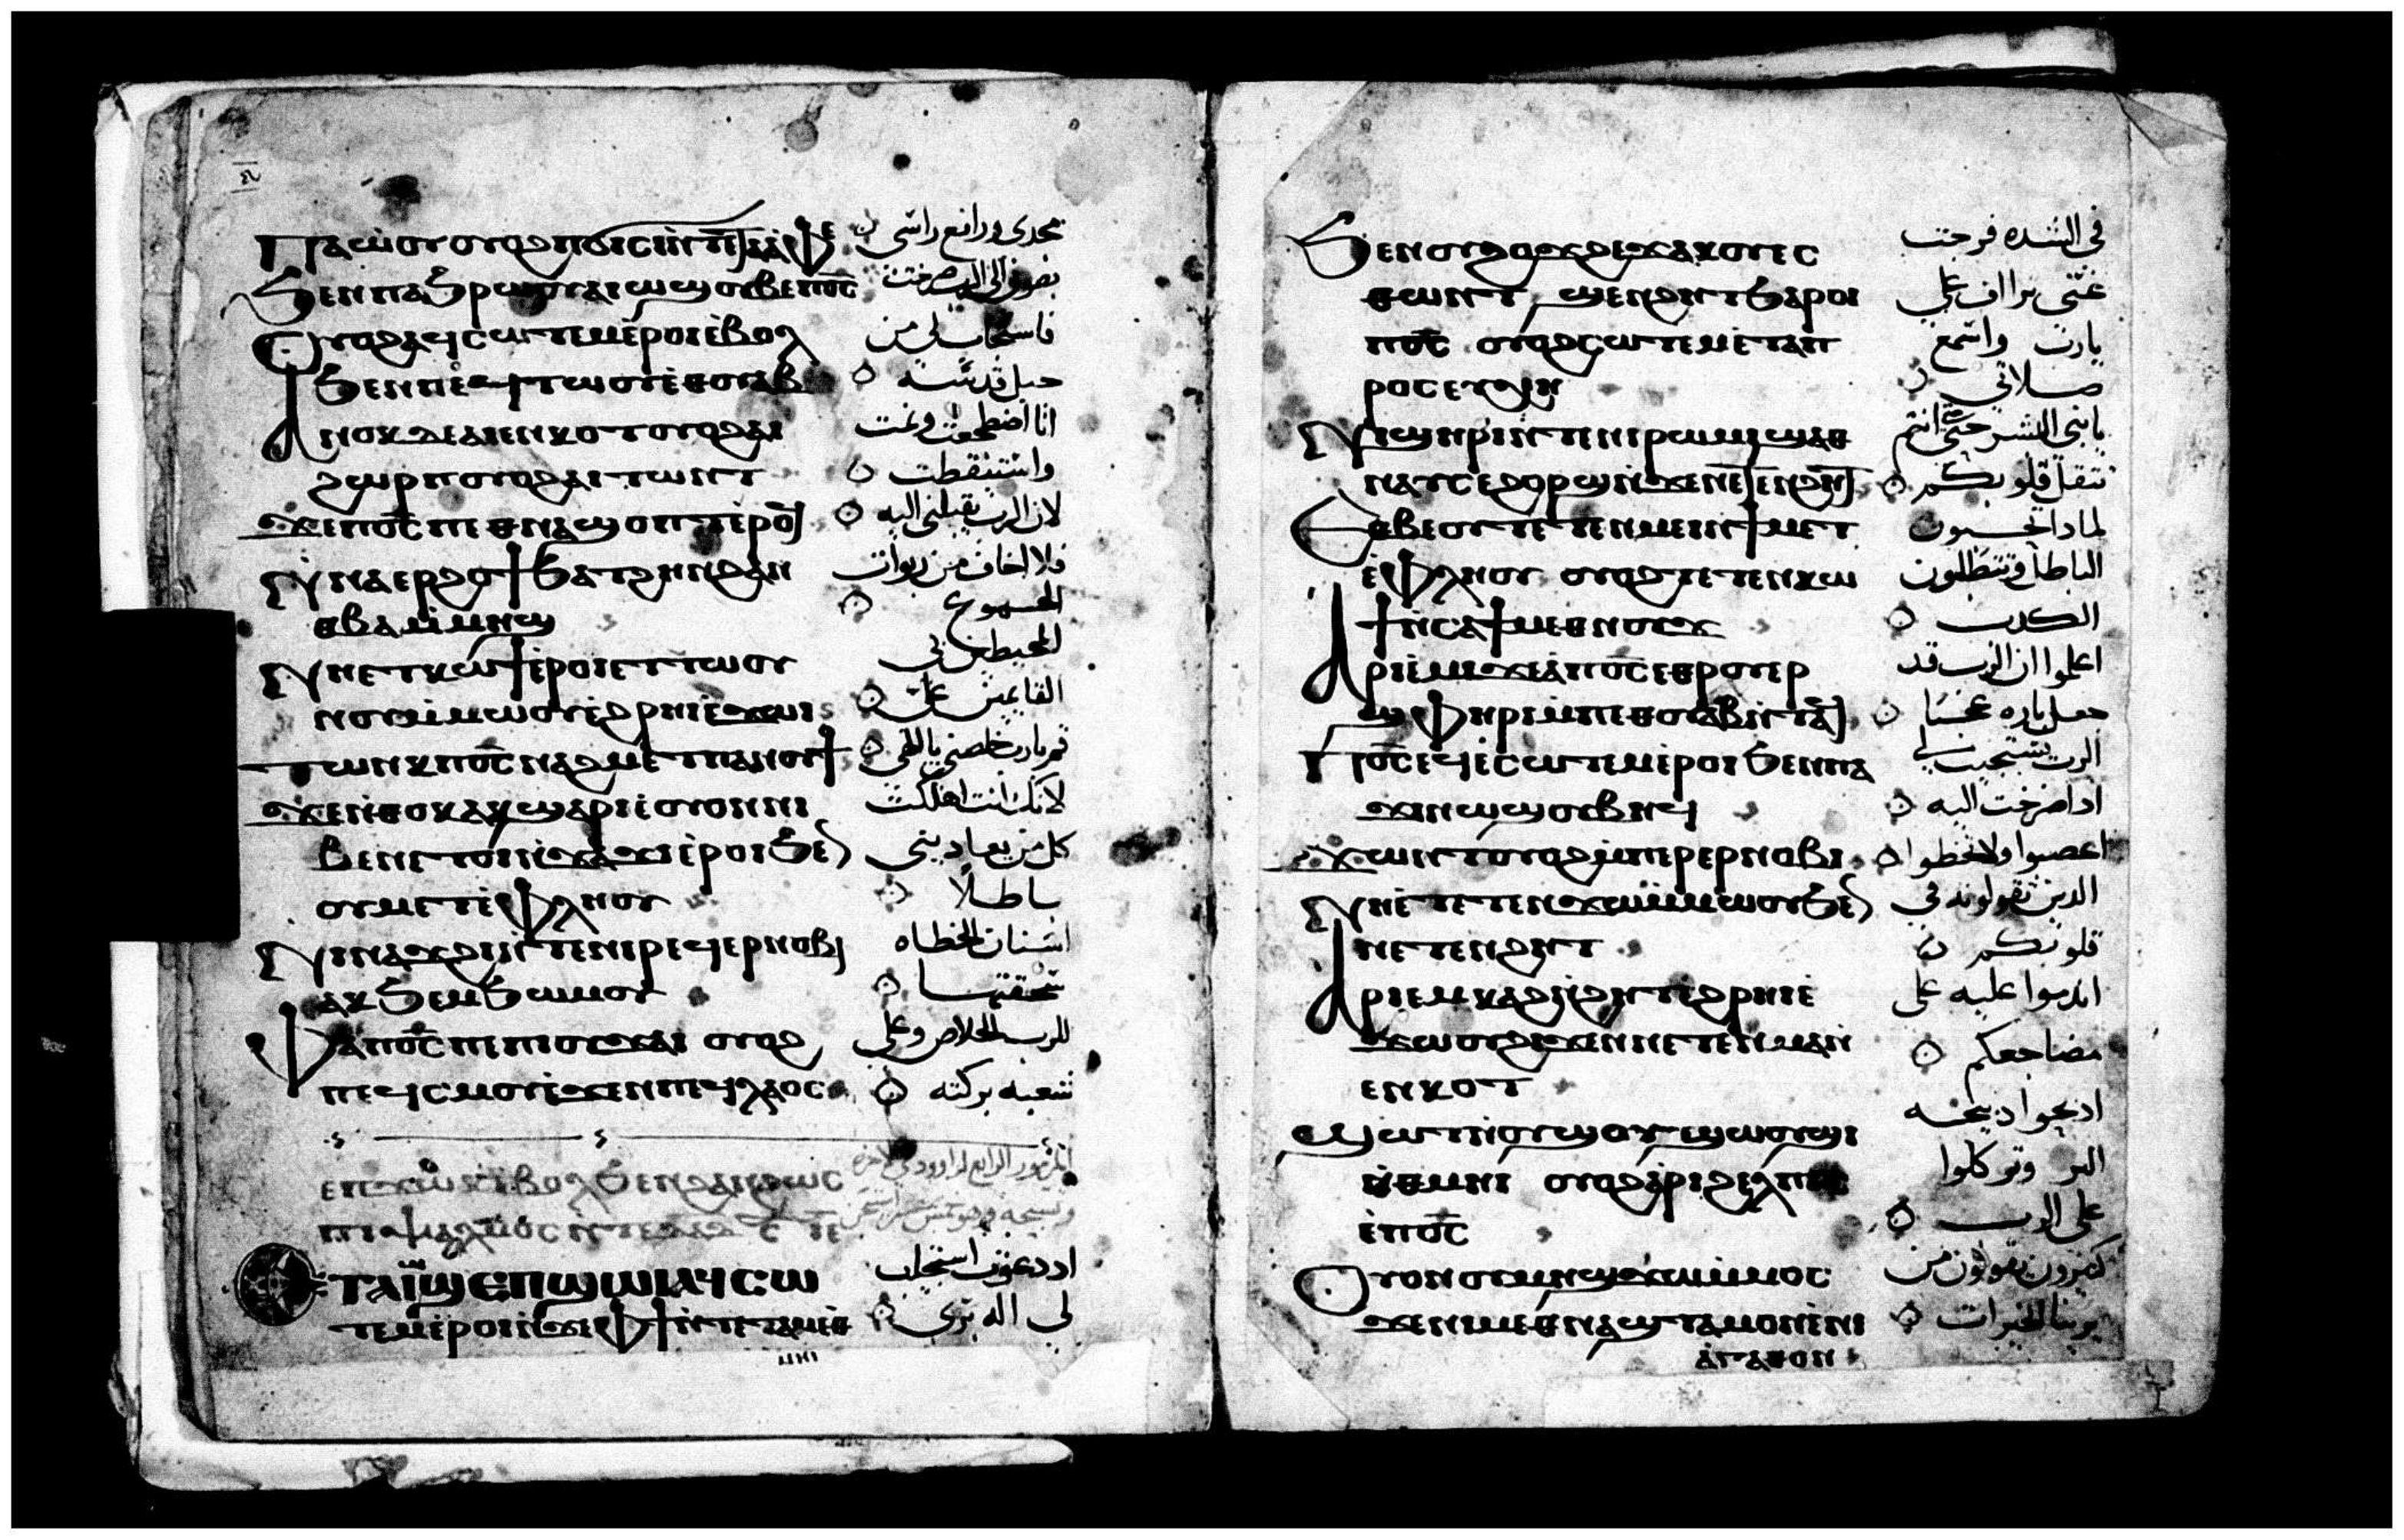 ⲡⲁⲱⲟⲩ ⲟⲩⲟϩ ⲡϭⲓⲥⲓ ⲛⲧⲉ ⲧⲁⲁⲫⲉ
مجدى ورافع راسى
ϧⲉⲛ ⲧⲁϧⲣⲱⲟⲩ ⲁⲓⲱϣ ⲟⲩⲃⲉ ⲡⲟ̅ⲥ̅
بصوتى الى الرب صرخت
ⲟⲩⲟϩ ⲁϥⲥⲱⲧⲉⲙ ⲉⲣⲟⲓ ⲉⲃⲟⲗ
فاستجاب لى من
ϧⲉⲛ ⲡⲉϥⲧⲱⲟⲩ ⲉⲑⲟⲩⲁⲃ
جبل قدسه
ⲁⲛⲟⲕ ⲇⲉ ⲁⲓⲉⲛⲕⲟⲧ ⲟⲩⲟϩ ⲁⲓ
انا اضطجعت ونمت
ϩⲱⲣⲡ ⲟⲩⲟϩ ⲁⲓⲧⲱⲛⲧ
واستيقظت
ϫⲉ ⲡⲟ̅ⲥ̅ ⲡⲉⲑⲛⲁϣⲟⲡⲧ ⲉⲣⲟϥ
لان الرب يقبلنى اليه
ⲛⲛⲁⲉⲣϩⲟϯ ϧⲁⲧϩⲏ ⲛϩⲁⲛ
فلا اخاف من ربوات
ⲑⲃⲁ ⲙⲙⲏϣ
الجموع
ⲛⲏ ⲉⲧⲕⲱϯ ⲉⲣⲟⲓ ⲉⲧⲧⲱⲟⲩ
المحيطين بى
ⲛⲟⲩ ⲙⲙⲱⲟⲩ ⲉϩⲣⲏⲓ ⲉϫⲱⲓ
القايمين على
ⲧⲱⲛⲕ ⲡⲟ̅ⲥ̅ ⲛⲁϩⲙⲉⲧ ⲡⲁⲛⲟⲩϯ
قم يارب خلصنى يا الهى
ϫⲉ ⲛⲑⲟⲕ ⲁⲕϣⲁⲣⲓ ⲉⲟⲩⲟⲛ ⲛⲓ
لانك انت اهلكت
ⲃⲉⲛ ⲉⲧⲟⲓ ⲛϫⲁϫⲓ ⲉⲣⲟⲓ ϧⲉⲛ
كل من يعادينى
ⲟⲩⲙⲉⲧⲉⲫⲗⲏⲟⲩ
باطلا
ⲛⲓⲛⲁϫϩⲓ ⲛⲧⲉ ⲛⲓⲣⲉϥⲉⲣⲛⲟⲃⲓ
اسنان الخطاه
ⲁⲕϧⲉⲙϧⲱⲙⲟⲩ
سحقتها
ⲫⲁ ⲡⲟ̅ⲥ̅ ⲡⲉ ⲡⲓⲟⲩϫⲁⲓ ⲟⲩⲟϩ
للرب الخلاص وعلى
ⲡⲉϥⲥⲙⲟⲩ ⲉϫⲉⲛ ⲡⲉϥⲗⲁⲟⲥ
شعبه بركته
ⲉⲡϫⲱⲕ ⲉⲃⲟⲗ ϧⲉⲛ ϩⲁⲛϩⲱⲥ
المزمور الرابع لداوود
ⲡⲓⲯⲁⲗⲙⲟⲥ ⲛⲧⲉ ⲇⲁⲇ
ⲉⲧⲁⲓⲱϣ ⲉⲡϣⲱⲓ ⲁϥⲥⲱ
اد دعوت استجاب
ⲧⲉⲙ ⲉⲣⲟⲓ ⲛϫⲉ ⲫϯ ⲛⲧⲉ ⲧⲁⲙⲉⲑ
لى اله برى
ⲙⲏⲓ
ϧⲉⲛ ⲟⲩϩⲟϫϩⲉϫ ⲁⲕⲟⲩⲉⲥ
فى الشده فرجت
ⲑⲱⲛⲧ ϣⲉⲛϩⲏⲧ ϧⲁⲣⲟⲓ
عنى تراف على
ⲡⲟ̅ⲥ̅ ⲟⲩⲟϩ ⲥⲱⲧⲉⲙ ⲉⲧⲁⲡ
يارب واسمع
ⲣⲟⲥⲉⲩⲭⲏ
صلاتى
ⲛⲓϣⲏⲣⲓ ⲛⲧⲉ ⲛⲓⲣⲱⲙⲓ ϣⲁⲑ
يا بنى البشر حتى انتم
ⲛⲁⲩ ⲥⲉϩⲟⲣϣ ⲛϫⲉ ⲛⲉⲧⲉⲛϩⲏⲧ
تثقل قلوبكم
ⲉⲑⲃⲉⲟⲩ ⲧⲉⲧⲉⲛⲙⲉⲓ ⲛϯⲙⲉⲧ
لمادا تحبون
ⲉⲫⲗⲏⲟⲩ ⲟⲩⲟϩ ⲧⲉⲧⲉⲛⲕⲱ
الباطل وتطلبون
ϯ ⲛⲥⲁ ϯⲙⲉⲑⲛⲟⲩϫ
الكدب
ⲁⲣⲓⲉⲙⲓ ϫⲉ ⲁⲡⲟ̅ⲥ̅ ⲑⲣⲟⲩⲉⲣ
اعلموا ان الرب قد
ϣⲫⲏⲣⲓ ⲙⲡⲉⲑⲟⲩⲁⲃ ⲛⲧⲁϥ
جعل باره عجبا
ⲡⲟ̅ⲥ̅ ⲉϥⲉⲥⲱⲧⲉⲙ ⲉⲣⲟⲓ ϧⲉⲛ ⲡⲁ
الرب يستجيب لى
ϫⲓⲛⲱϣ ⲟⲩⲃⲏϥ
ادا صرخت اليه
ϫⲱⲛⲧ ⲟⲩⲟϩ ⲙⲡⲉⲣⲉⲣⲛⲟⲃⲓ
اغضبوا ولا تخطوا
ⲛⲏ ⲉⲧⲉⲧⲉⲛϫⲱ ⲙⲙⲱⲟⲩ ϧⲉⲛ
الدين تقولونه فى
ⲛⲉⲧⲉⲛϩⲏⲧ
قلوبكم
ⲁⲣⲓⲉⲙⲕⲁϩ ⲛϩⲏⲧ ⲉϩⲣⲏⲓ ⲉ
اندموا عليه على
ϫⲱⲟⲩ ϩⲓϫⲉⲛ ⲛⲉⲧⲉⲛⲙⲁⲛ
مضاجعكم
ⲉⲛⲕⲟⲧ
ϣⲱⲧ ⲛⲟⲩϣⲟⲩϣⲱⲟⲩϣⲓ
ادبحوا دبيحه
ⲙⲙⲉⲑⲙⲏⲓ ⲟⲩⲟϩ ⲁⲣⲓϩⲉⲗⲡⲓⲥ
البر وتوكلوا
ⲉⲡⲟ̅ⲥ̅
على الرب
ⲟⲩⲟⲛ ⲟⲩⲙⲏϣ ϫⲱ ⲙⲙⲟⲥ
كثيرون يقولون من
ϫⲉ ⲛⲓⲙ ⲉⲑⲛⲁϣⲧⲁⲙⲟⲛ ⲉⲛⲓ
يرينا الخيرات
ⲁⲅⲁⲑⲟⲛ